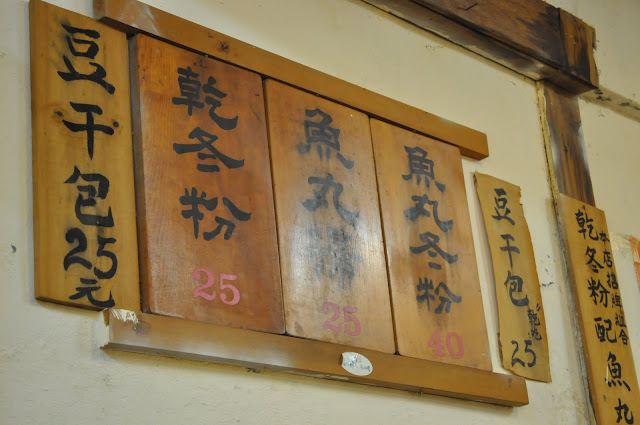 豆干包25元
乾冬粉
25
魚丸湯
25
魚丸冬粉
40
豆干包
25
本店招牌組合
乾冬粉配魚丸